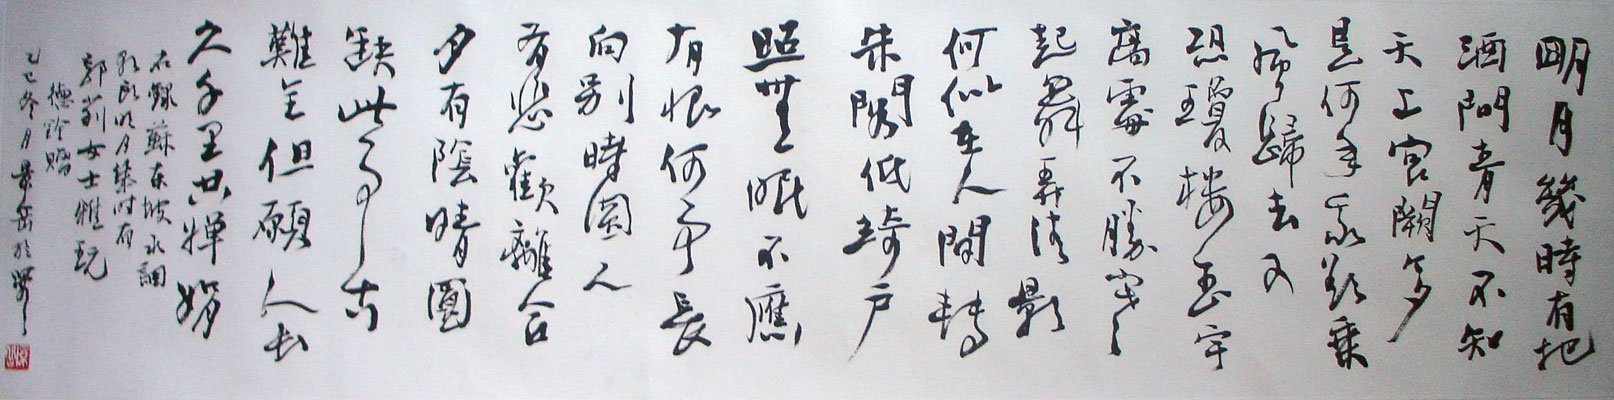 明月幾時有把
酒問青天不知
天上宮闕今夕
是何年我欲乘
風歸去又
恐瓊樓玉宇
高處不勝寒
起舞弄清影
何似在人間轉
朱閣低綺戶
照無眠不應
有恨何事長
向別時圓人
有悲歡離合
月有陰晴圓
缺此事古
難全但願人長
久千里共嬋娟
右錄蘇東坡水調
歌頭明月幾時有
郭莉女士雅玩
德銓贈
乙巳冬月景岳於